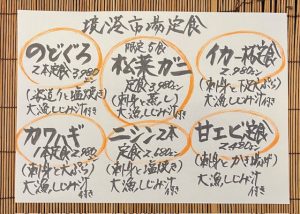 境港市場定食
のどぐろ
2本定食3,980
(煮付と塩焼き)
大漁しじみ汁付き
限定5食
松葉ガニ
定食3,980
(刺身と蒸し)
大漁しじみ汁付き
イカ一杯定食
2,980
(刺身と天ぷら)
大漁しじみ汁付き
カワハギ
一本定食2,980
(刺身と大葉)
大漁しじみ汁付き
ニシン2本
定食2,680
(刺身と塩焼き)
大漁しじみ汁付き
甘エビ定食
2,480
(刺身とかき揚げ)
大漁しじみ汁付き